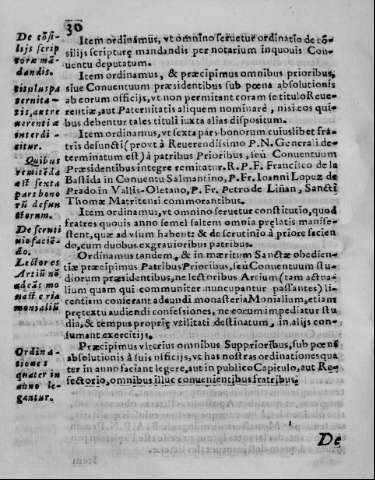 30
De cōsi-
lijs scrip
toræ mā-
dandis.
Item ordinamus, vt omnino seruetur ordinatio de cō-
silijs scripturę mandandis per notarium in quouis Con-
uentu deputatum.
Titulus pa
ternita-
tis, autre
uerentiæ
interdi-
citur.
Item ordinamus, & præcipimus omnibus prioribus,
siue Conuentuum præsidentibus sub pœna absolutionis
ab eorum officijs, vt non permitant coram se titulo Reue-
rentiæ, aut Paternitatis aliquem nominarē, nisi eos qui-
bus debentur tales tituli iuxta alias dispositum.
Quibus
remitēda
est sexta
pars bono
rū defun
ctorum.
Item ordinamus, vt sexta pars bonorum cuiuslibet fra-
tris defuncti (provt à Reuerendissimo P. N. Generali de-
terminatum est) à patribus Prioribus, seù Conuentuum
Præsidentibus integre remitatur. R. P. F. Francisco de la
Bastida in Conuentu Salmantino, P. Fr. Ioanni Lopez de
Prado in Vallis-Oletano, P. Fr. Petro de Liñan, Sancti
Thomæ Matritensi commorantibus.
De scruti
nio faciē-
do.
Item ordinamus, vt omnino seruetur constitutio, quod
fratres quouis anno semel saltem omnia prælatis manife-
stent, quæ ad vsum habent: & de scrutinio à priore facien
do, cum duobus exgrauioribus patribus.
Lectores
Artiū nō
adeāt mo
nasteria
monialiū
Ordinamus tandem, & in mæritum Sanctæ obedien-
tiæ præcipimus Patribus Prioribus, seù Conuentuum stu-
diorum præsidentibus, ne lectoribus Artium (tam actua-
lium quam qui communiter nuncupantur passantes) li-
centiam conferant adeundi monasteria Monialium, etiam
prętextu audiendi confesiones, ne eorum impediatur stu
dia, & tempus proprię vtilitati destinatum, in alijs con-
sumant exercitijs.
Ordina-
tiones
quater in
anno le-
gantur.
Præcipimus vlterius omnibus Supprioribus, sub pœna
absolutionis à suis officijs, vt has nostras ordinationes qua
ter in anno faciant legere, aut in publico Capitulo, aut Re-
fectorio, omnibus illuc conuenientibus fratribus.
De